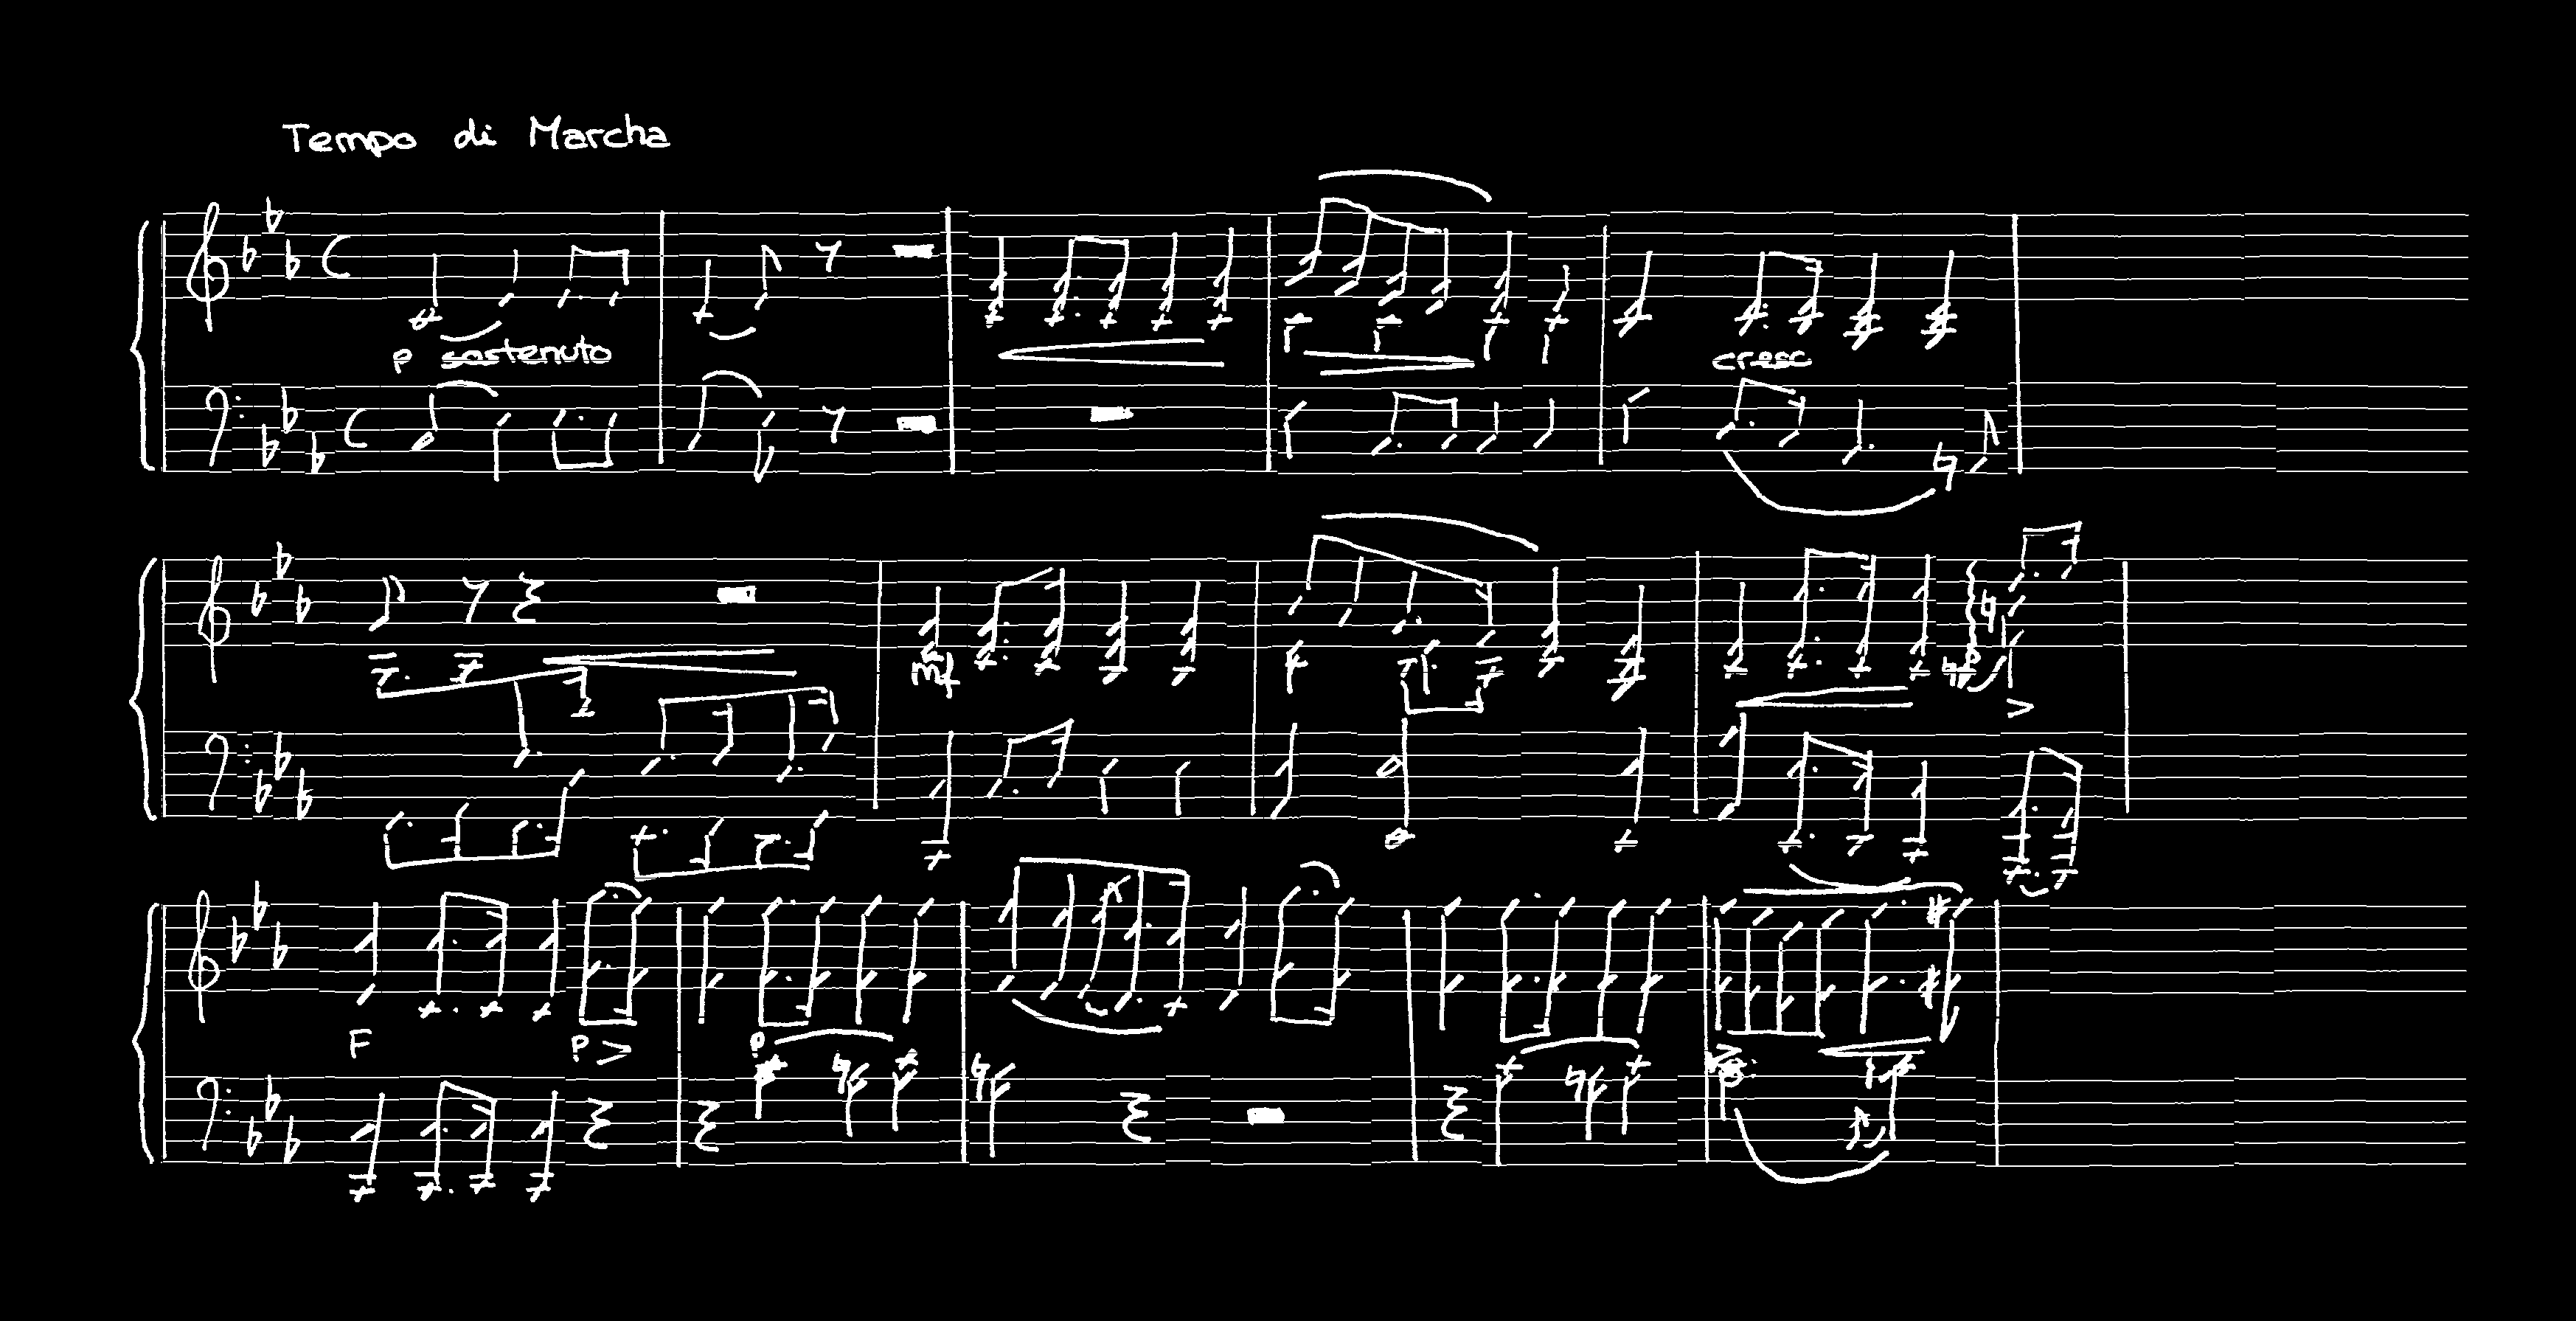 Tempo di Marcha
p sostenuto
cresc
mf
p
F
p
p